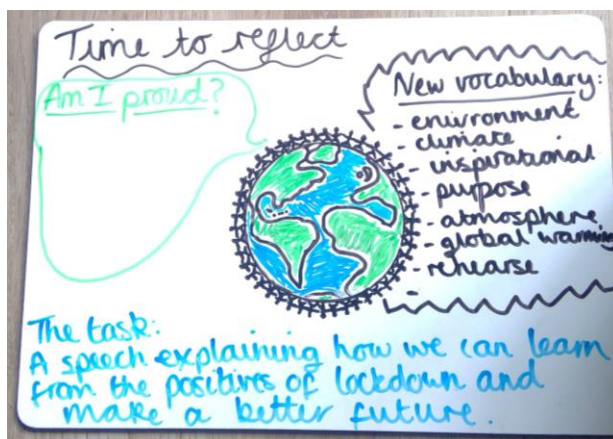 Time to reflect
Am I proud?
New vocabulary:
- environment
- climate
- inspirational
- purpose
- atmosphere
- global warming
- rehearse
The task:
A speech explaining how we can learn
from the positives of lockdown and
make a better future.